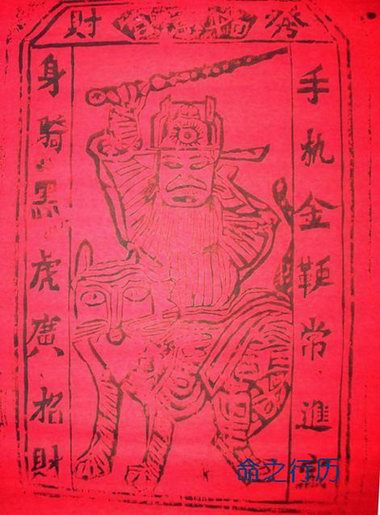 財
手执金鞭常進
身騎黑虎廣招財
命之行历